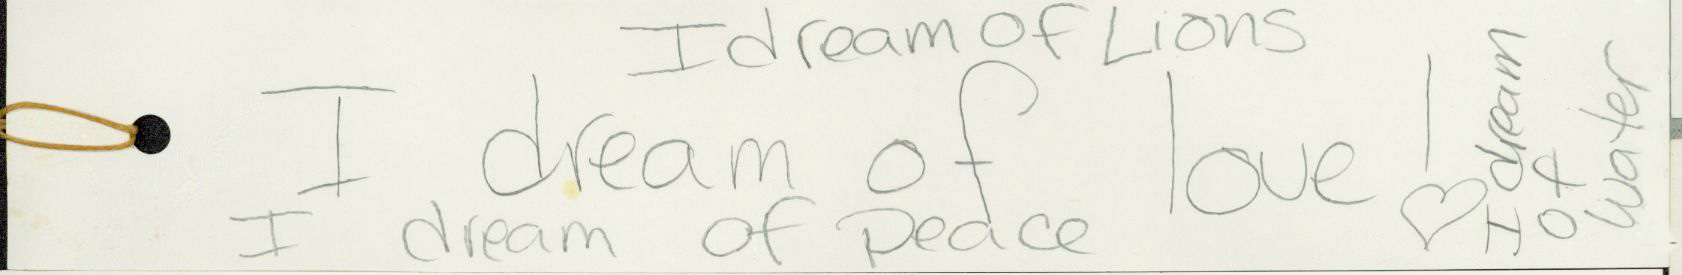 I dream of Lions
I dream of love!
I dream of peace
I dream
of
water